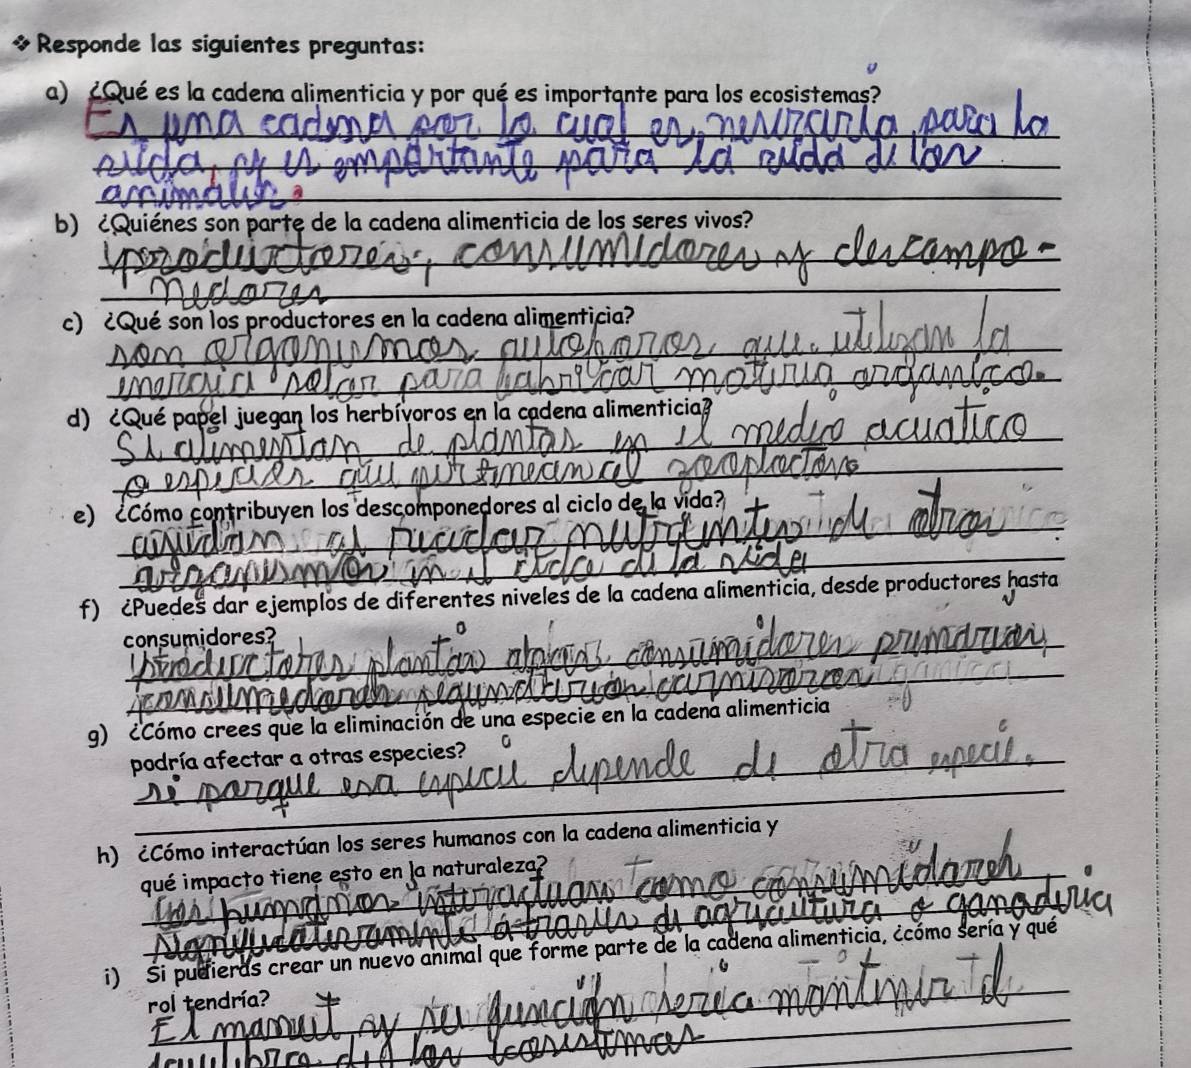 ❖ Responde las siguientes preguntas:
a) ¿Qué es la cadena alimenticia y por qué es importante para los ecosistemas?
Es una cadena por lo cual es, nesesaria, para la
vida, y es emportante para la vida de los
animales.
b) ¿Quiénes son parte de la cadena alimenticia de los seres vivos?
productores, consumidores y descompo-
nedores
c) ¿Qué son los productores en la cadena alimenticia?
son organismos que utilizan la
energia solar para fabricar materia organica.
d) ¿Qué papel juegan los herbívoros en la cadena alimenticia?
Se alimentan de plantas en el medio acuatico
o especies que
e) ¿Cómo contribuyen los descomponedores al ciclo de la vida?
ayudan al nutrientes de otros
organismos en el ciclo de la vida
f) ¿Puedes dar ejemplos de diferentes niveles de la cadena alimenticia, desde productores hasta
consumidores?
productores plantas consumidores primarios
g) ¿Cómo crees que la eliminación de una especie en la cadena alimenticia
podría afectar a otras especies?
si porque esa especie depende de otra especie.
h) ¿Cómo interactúan los seres humanos con la cadena alimenticia y
qué impacto tiene esto en la naturaleza?
Los humanos interactuan como consumidores
a traves de agricultura o ganaderia
i) Si pudieras crear un nuevo animal que forme parte de la cadena alimenticia, ¿cómo sería y qué
rol tendría?
El mamut y su función seria mantener el
de los ecosistemas